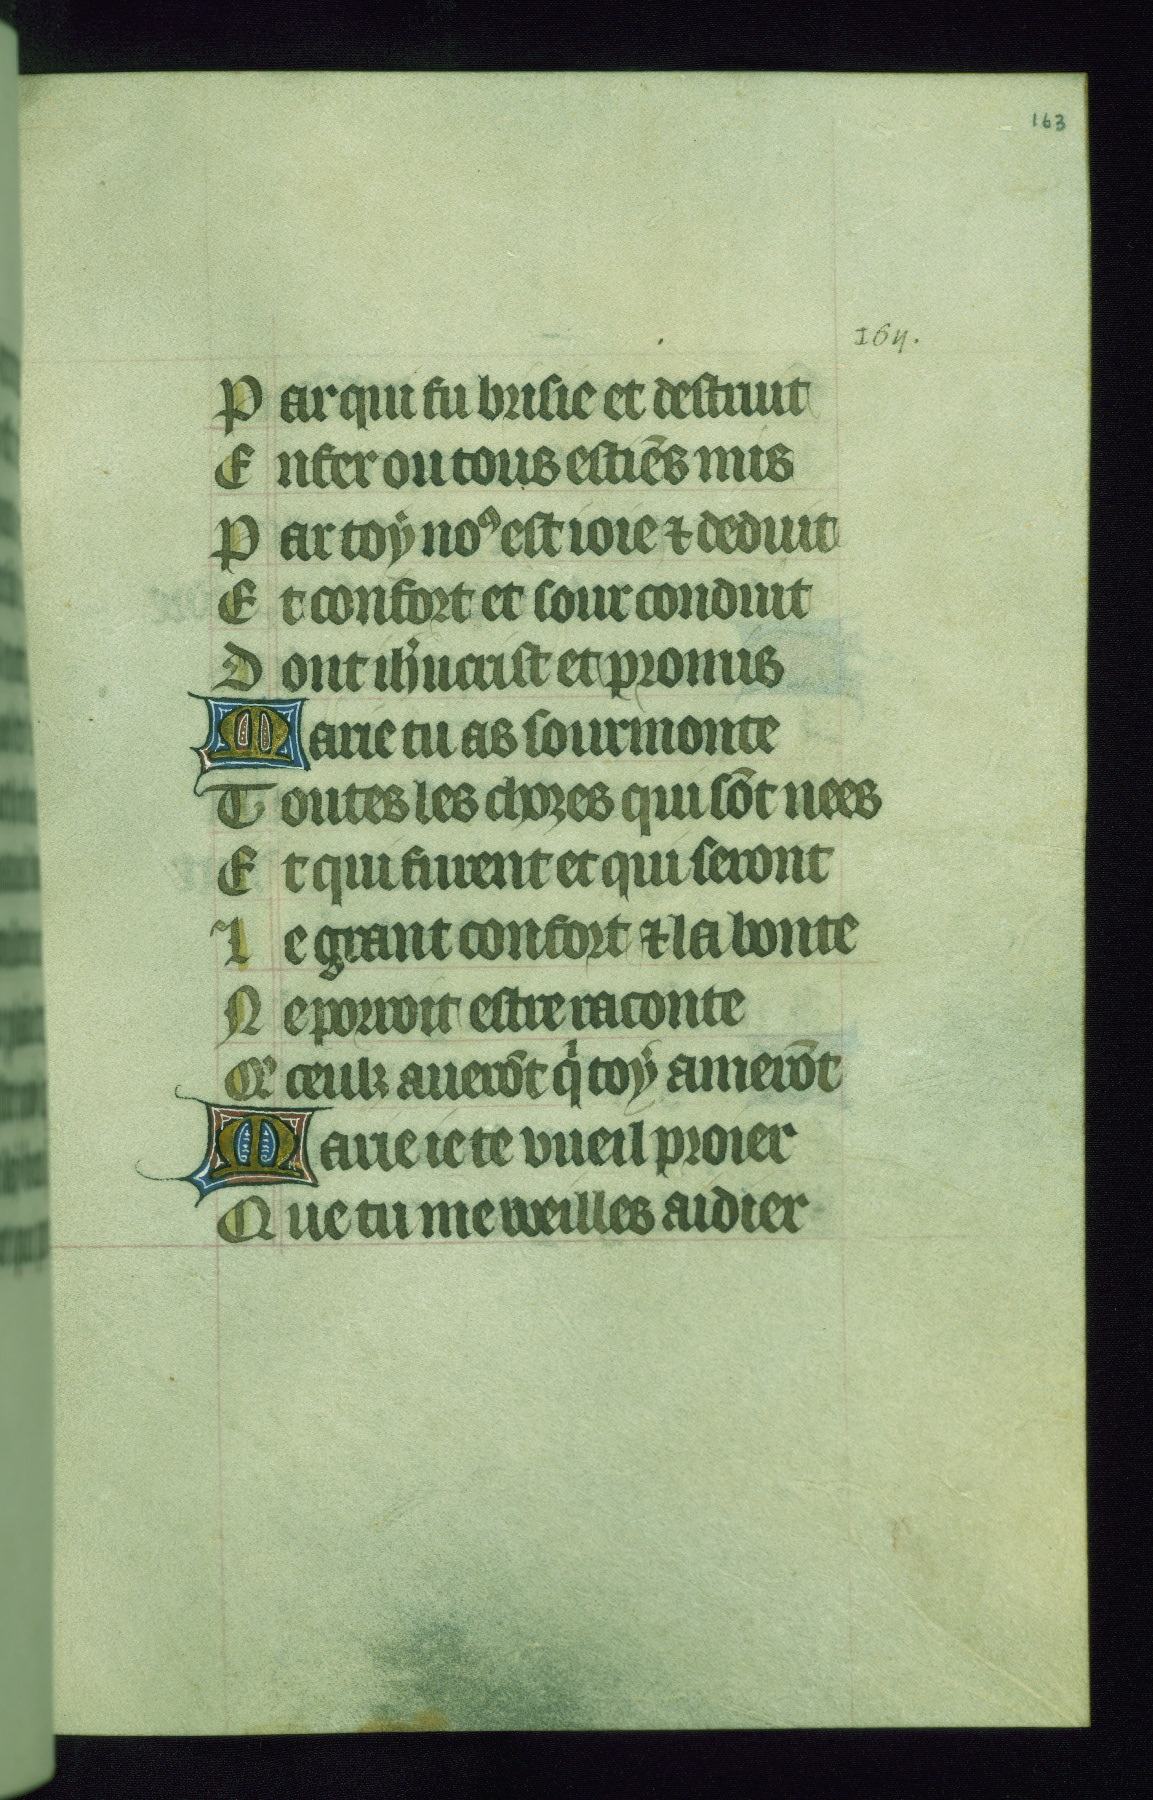 163
164.
Par qui fu brisie et destruit
Enfer ou tous estiẽs mis
Par toy noꝰ est ioie ⁊ deduit
Et confort et sour conduit
Dont ihũ crist et promis
Marie tu as sourmonte
Toutes les chozes qui sõt nees
Et qui furent et qui seront
Le grant confort ⁊ la bonte
Ne porroit estre raconte
Q̃ ceulz auerõt q̃ toy amerõt
Marie ie te vueil proier
Que tu me weilles aidier